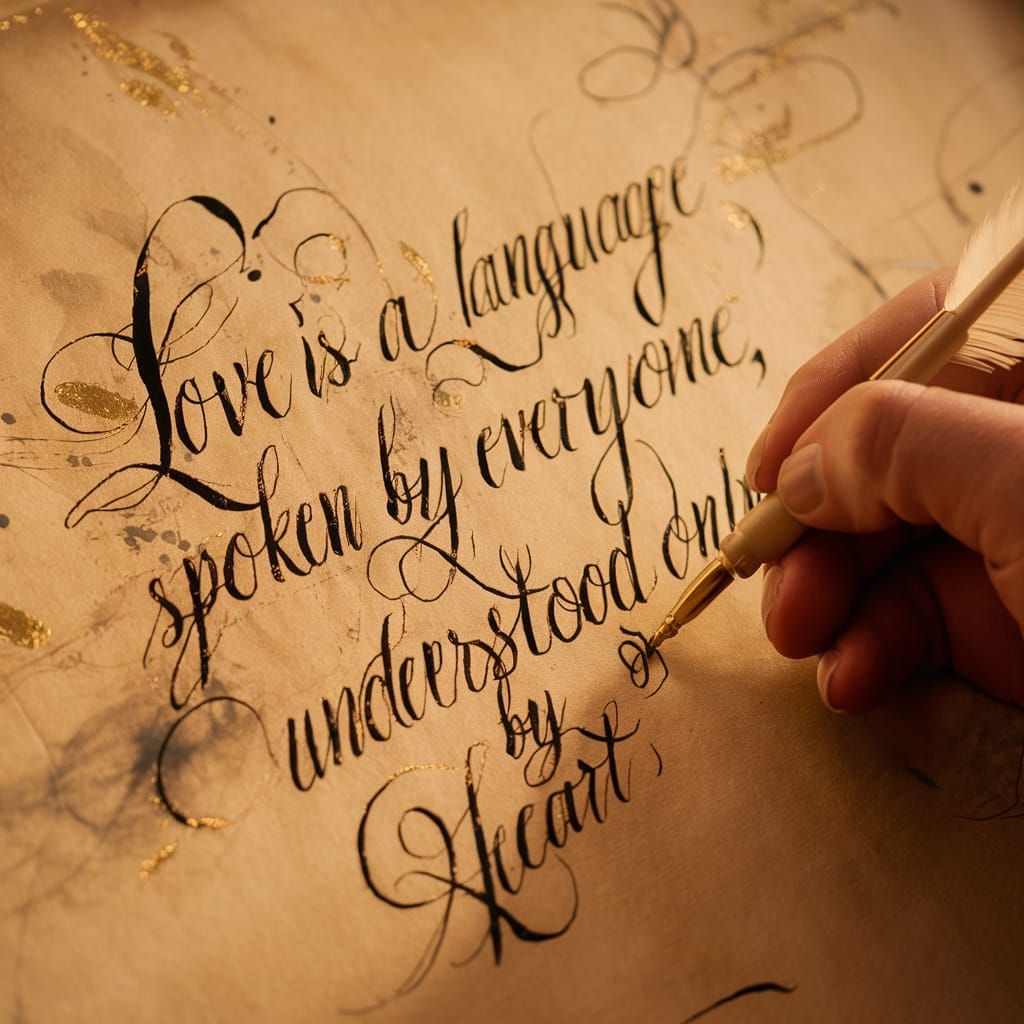 Love is a language
spoken by everyone,
understood only
by
Heart